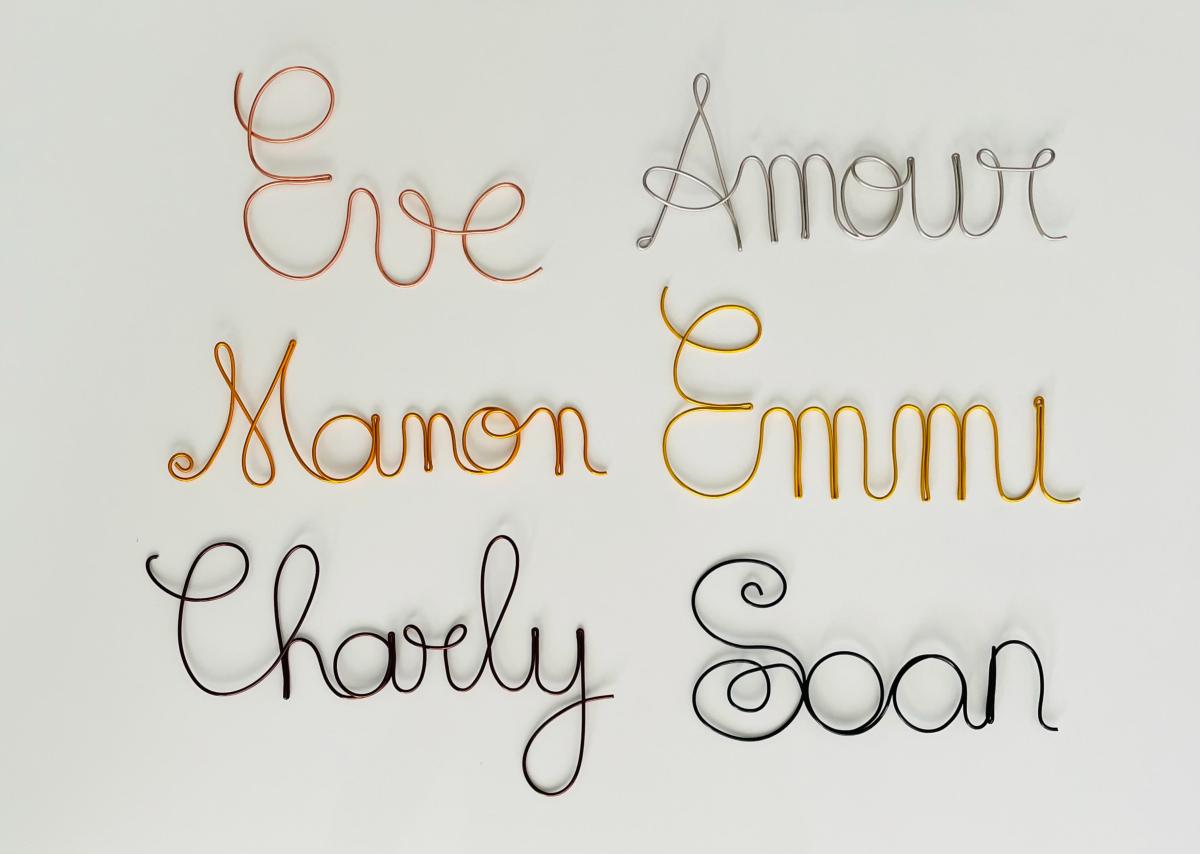 Eve
Amour
Manon
Emmi
Charly
Soan